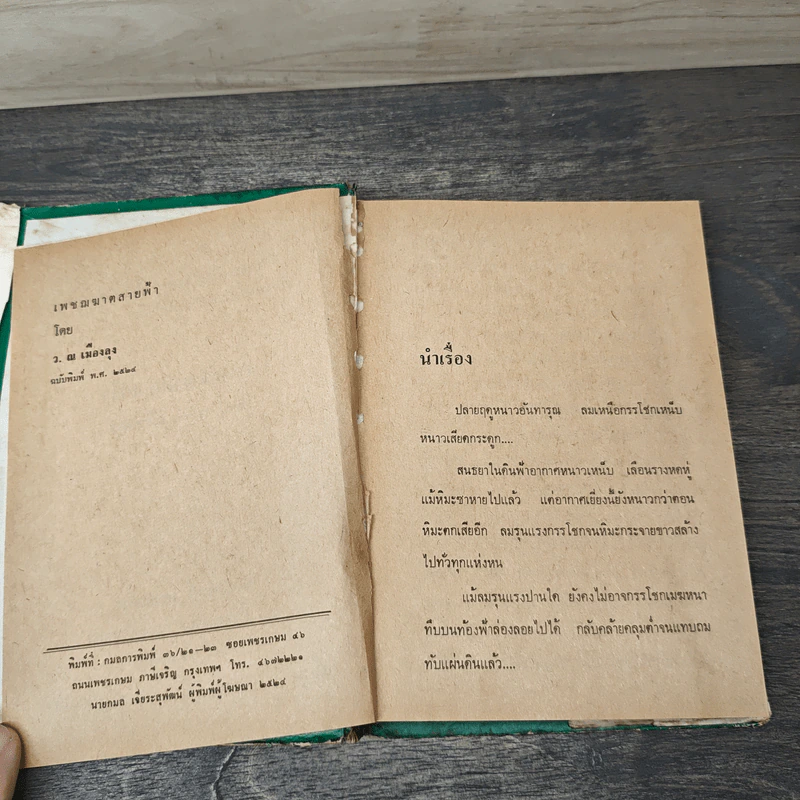 เพชฌฆาตสายฟ้า
โดย
ว. ณ เมืองลุง
ฉบับพิมพ์ พ.ศ. ๒๕๒๔
พิมพ์ที่ : กมลการพิมพ์ ๓๖/๒๑—๒๓ ซอยเพชรเกษม ๔๖
ถนนเพชรเกษม ภาษีเจริญ กรุงเทพฯ โทร. ๔๖๗๒๒๒๑
นายกมล เจียระสุพัฒน์ ผู้พิมพ์ผู้โฆษณา ๒๕๒๔
นำเรื่อง
ปลายฤดูหนาวอันทารุณ ลมเหนือกรรโชกเหน็บ
หนาวเสียดกระดูก....
สนธยาในดินฟ้าอากาศหนาวเหน็บ เลือนรางหดหู่
แม้หิมะซาหายไปแล้ว แต่อากาศเยี่ยงนี้ยังหนาวกว่าตอน
หิมะตกเสียอีก ลมรุนแรงกรรโชกจนหิมะกระจายขาวสล้าง
ไปทั่วทุกแห่งหน
แม้ลมรุนแรงปานใด ยังคงไม่อาจกรรโชกเมฆหนา
ทึบบนท้องฟ้าล่องลอยไปได้ กลับคล้ายคลุมต่ำจนแทบถม
ทับแผ่นดินแล้ว....